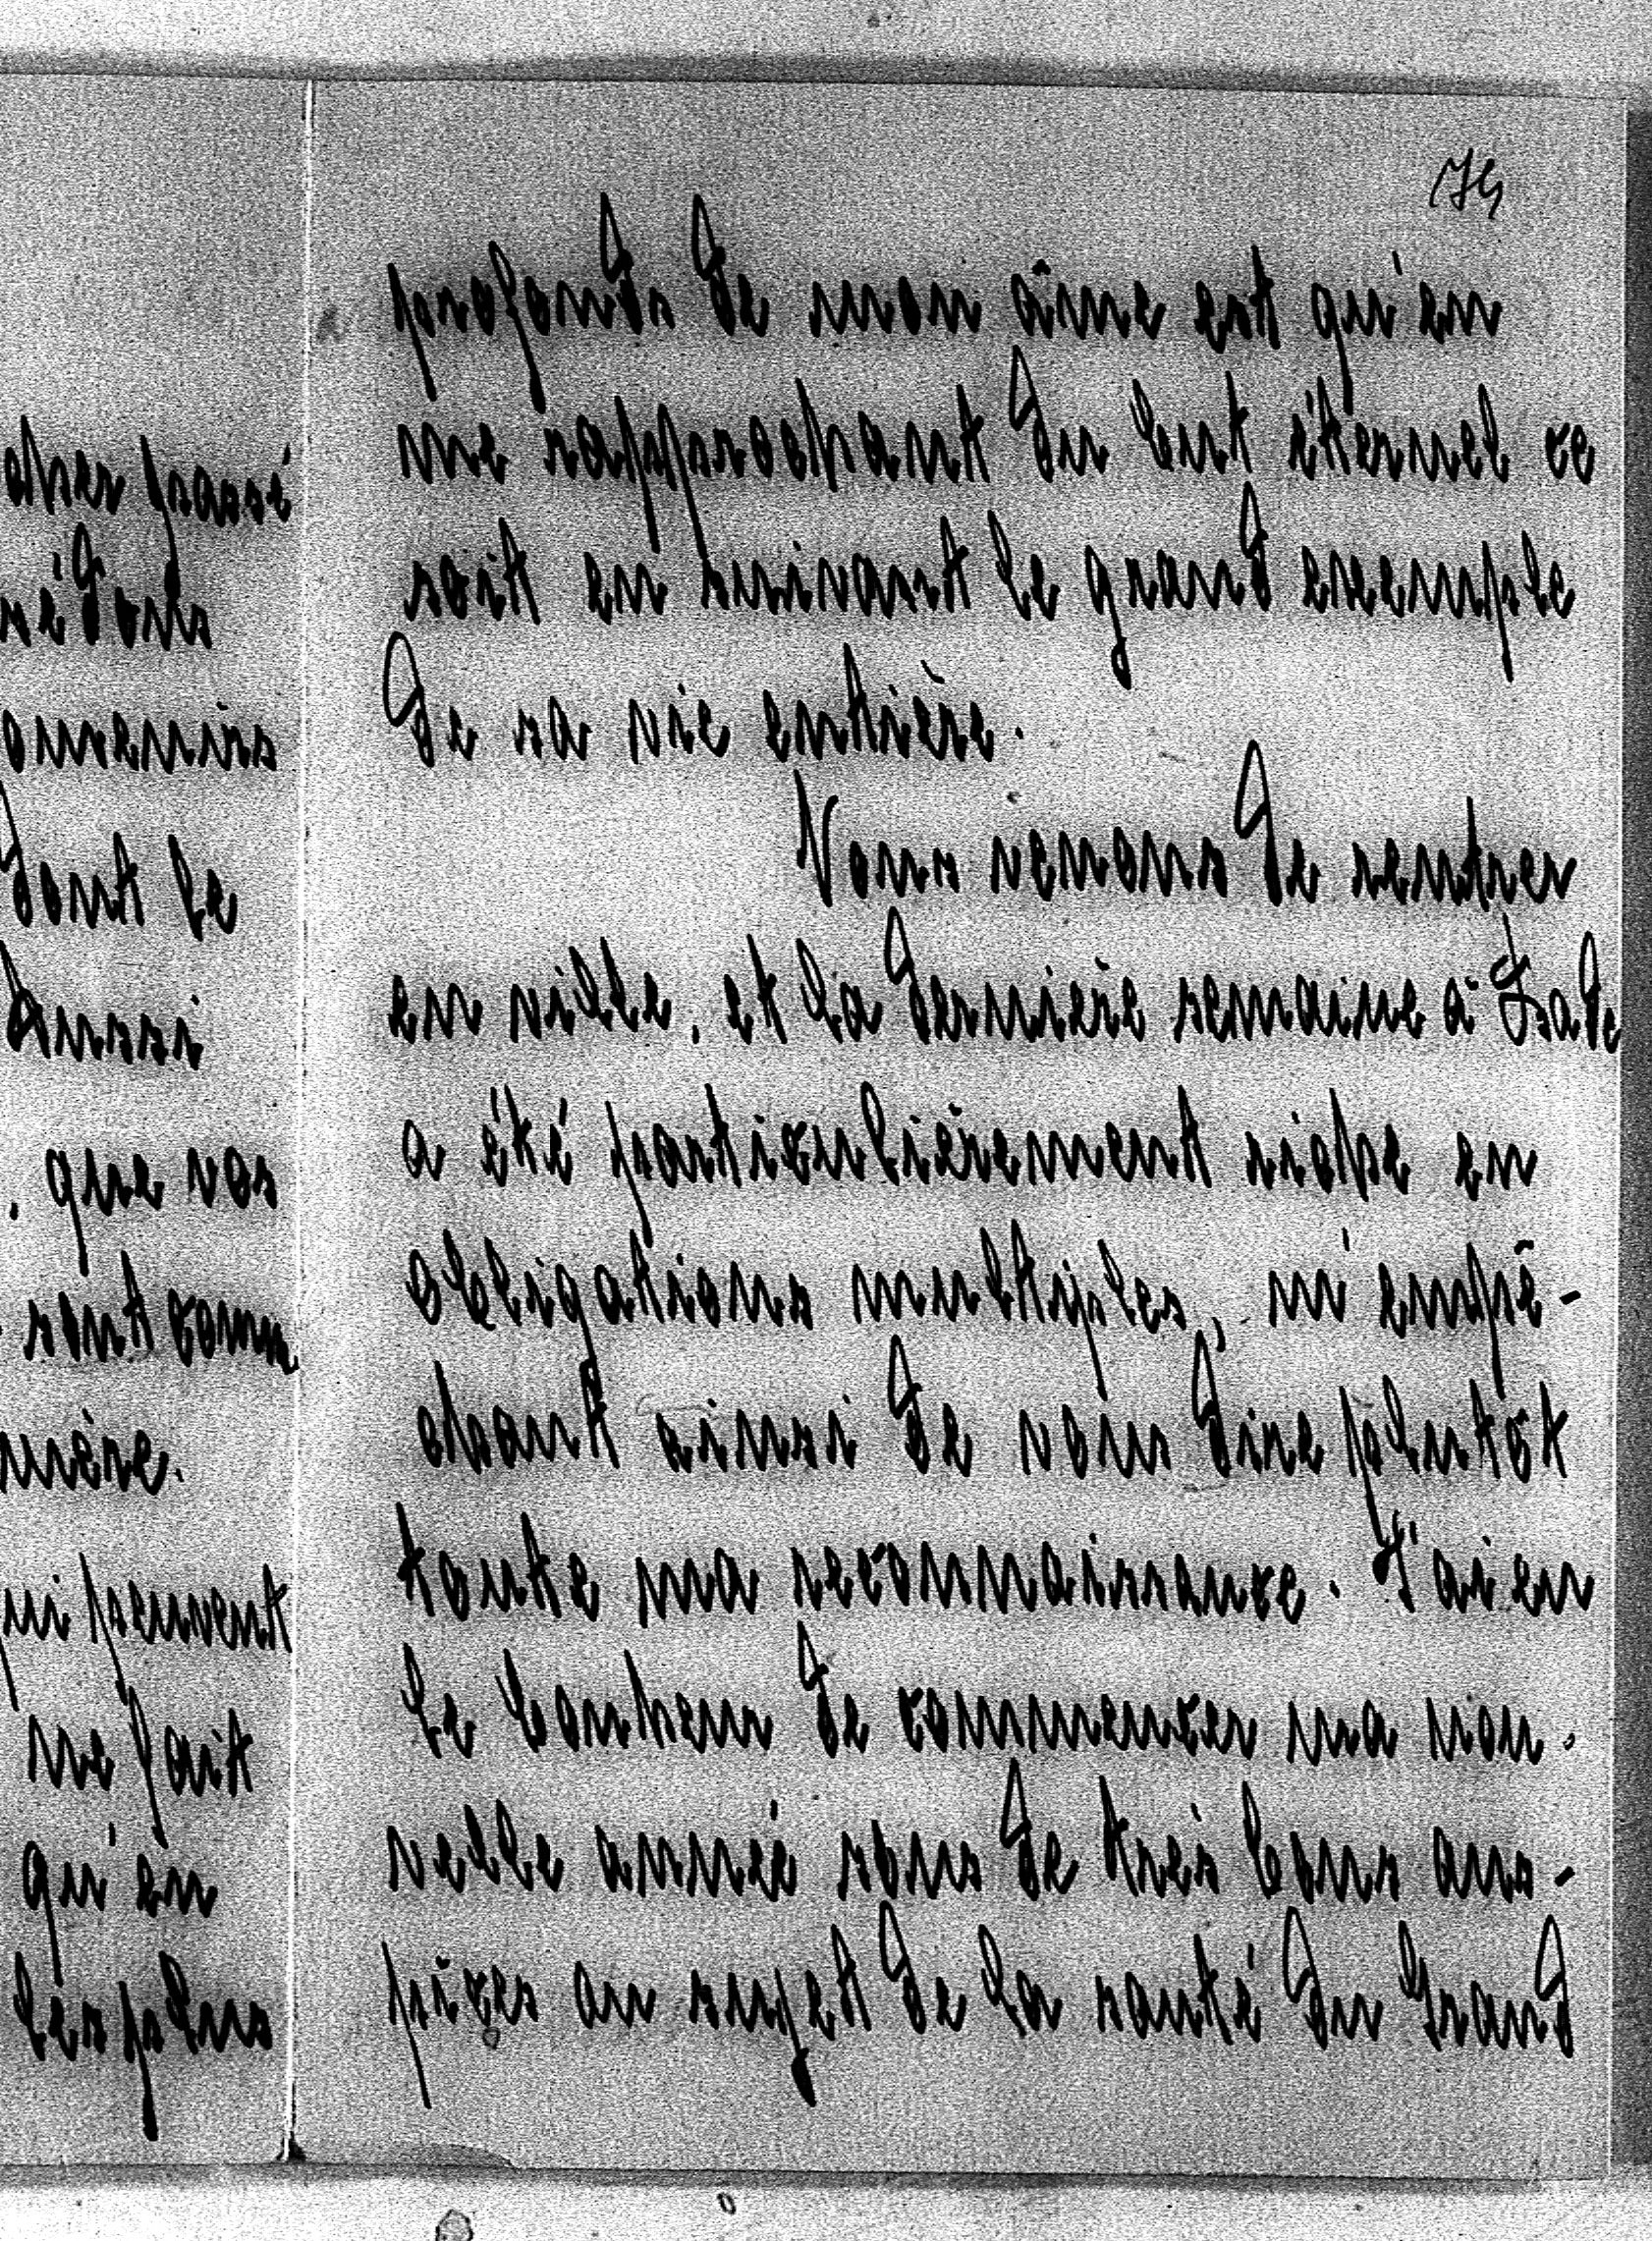 cher passé
médons
ouvenirs
dont le
Aussi
. que vos
sont comm
mière.
qui peuvent
me fait
qu'en
les plus
174
profonds de mon âme est qu'en
me rapprochant du but éternel ce
soit en suivant le grand exemple
de sa vie entière.
Nous venons de rentrer
en ville, et la dernière semaine à
a été particulièrement riche en
obligations multiples, m'empê-
chant ainsi de vous dire plutôt
toute ma reconnaissance. J'ai eu
le bonheur de commencer ma nou-
velle année sous de très bons aus-
pices au sujet de la santé du Grand